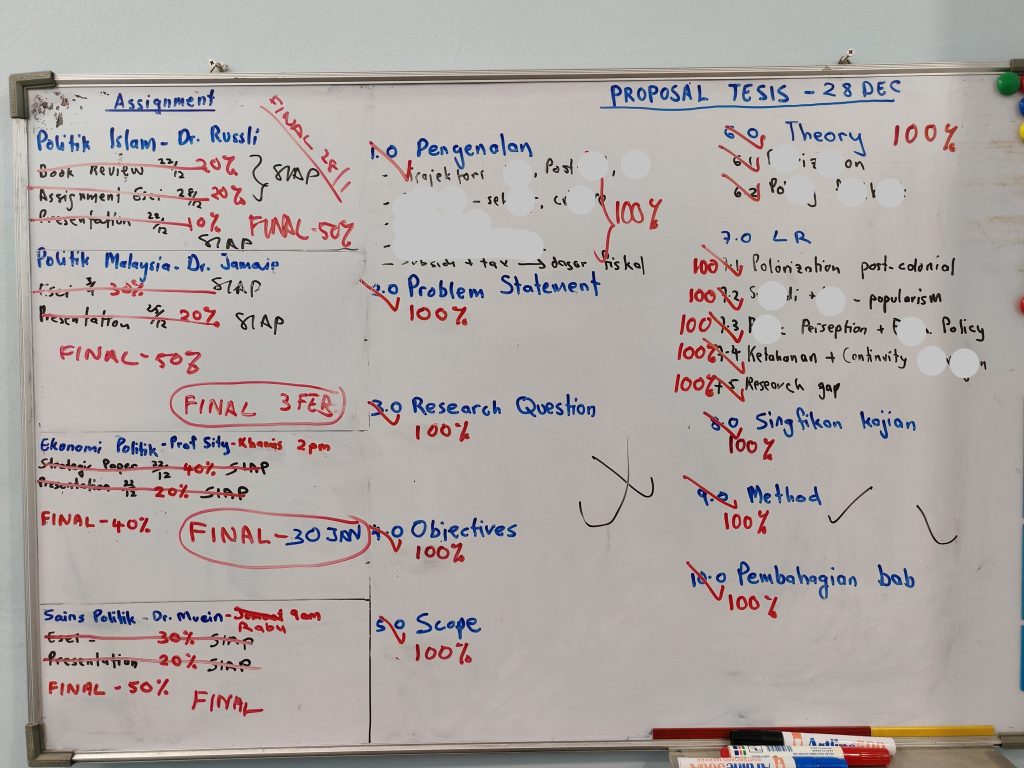 Assignment
Politik Islam - Dr. Russli
FINAL 28/1
Book Review 22/12 20%
SIAP
Assignment Esei 28/12 20%
Presentation 22/12 10%
SIAP
FINAL-50%
Politik Malaysia - Dr. Jamaie
Esei 30% SIAP
Presentation 28/12 20% SIAP
FINAL-50%
FINAL 3 FEB
Ekonomi Politik - Prof Sity - Khamis 2pm
Strategic Paper 22/12 40% SIAP
Presentation 22/12 20% SIAP
FINAL-40%
FINAL-30 JAN
Sains Politik - Dr. Muein - Jumaat 9am
Rabu
Esei - 30% SIAP
Presentation 20% SIAP
FINAL - 50%
FINAL
PROPOSAL TESIS - 28 DEC
1.0 Pengenalan
- Trajektori , Post ,
-
- subsidi + tax → dasar fiskal
100%
2.0 Problem Statement
100%
3.0 Research Question
100%
4.0 Objectives
100%
5.0 Scope
100%
6.0 Theory 100%
6.1
6.2
7.0 LR
100% 7.1 Polorization post-colonial
100% 7.2 + - popularism
100% 7.3 Perseption + Policy
100% 7.4 Ketahanan + Continvity
100% 7.5 Research gap
8.0 Singfikan kajian
100%
9.0 Method
100%
10.0 Pembahagian bab
100%
Artline 500